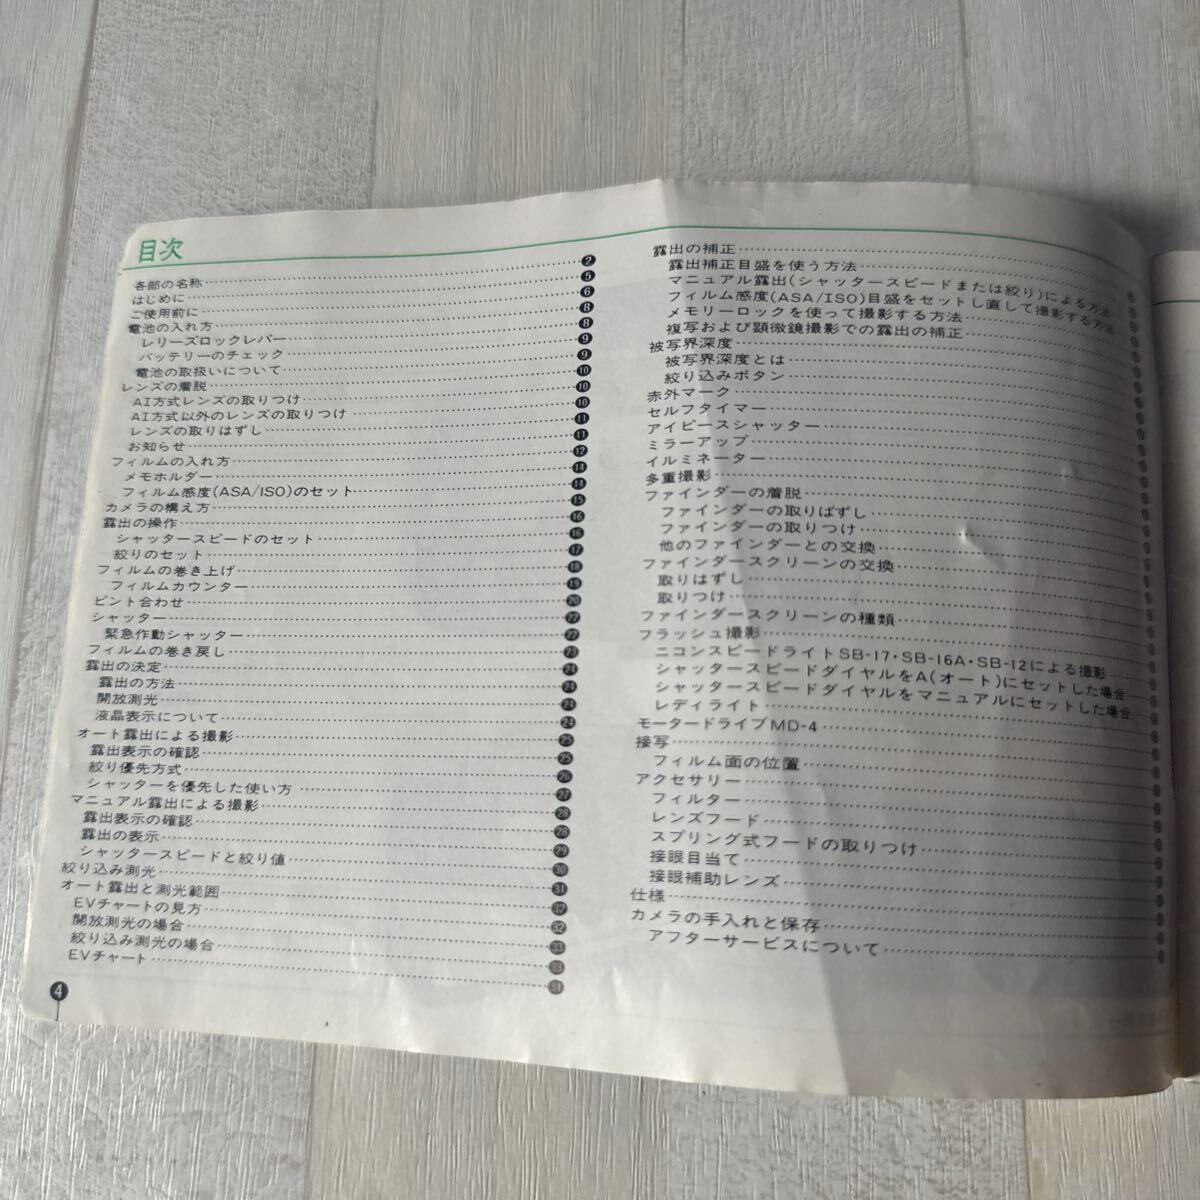 目次
各部の名称 2
はじめに 5
ご使用前に 6
電池の入れ方 8
レリーズロックレバー 8
バッテリーのチェック 9
電池の取扱いについて 9
レンズの着脱 10
AI方式レンズの取りつけ 10
AI方式以外のレンズの取りつけ 10
レンズの取りはずし 11
お知らせ 11
フィルムの入れ方 12
メモホルダー 14
フィルム感度(ASA/ISO)のセット 14
カメラの構え方 15
露出の操作 16
シャッタースピードのセット 16
絞りのセット 17
フィルムの巻き上げ 18
フィルムカウンター 19
ピント合わせ 20
シャッター 22
緊急作動シャッター 22
フィルムの巻き戻し 23
露出の決定 24
露出の方法 24
開放測光 24
液晶表示について 24
オート露出による撮影 25
露出表示の確認 25
絞り優先方式 26
シャッターを優先した使い方 27
マニュアル露出による撮影 28
露出表示の確認 28
露出の表示 29
シャッタースピードと絞り値 30
絞り込み測光 31
オート露出と測光範囲 32
EVチャートの見方 32
開放測光の場合 33
絞り込み測光の場合 33
EVチャート 34
露出の補正
露出補正目盛を使う方法
マニュアル露出(シャッタースピードまたは絞り)による方法
フィルム感度(ASA/ISO)目盛をセットし直して撮影する方法
メモリーロックを使って撮影する方法
複写および顕微鏡撮影での露出の補正
被写界深度
被写界深度とは
絞り込みボタン
赤外マーク
セルフタイマー
アイピースシャッター
ミラーアップ
イルミネーター
多重撮影
ファインダーの着脱
ファインダーの取りはずし
ファインダーの取りつけ
他のファインダーとの交換
ファインダースクリーンの交換
取りはずし
取りつけ
ファインダースクリーンの種類
フラッシュ撮影
ニコンスピードライトSB-17・SB-16A・SB-12による撮影
シャッタースピードダイヤルをA(オート)にセットした場合
シャッタースピードダイヤルをマニュアルにセットした場合
レディライト
モータードライブMD-4
接写
フィルム面の位置
アクセサリー
フィルター
レンズフード
スプリング式フードの取りつけ
接眼目当て
接眼補助レンズ
仕様
カメラの手入れと保存
アフターサービスについて
4